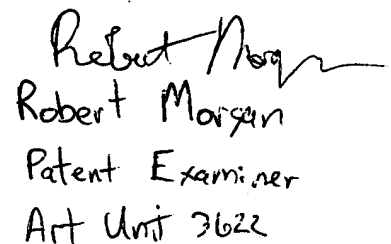 Robert Morgan
Robert Morgan
Patent Examiner
Art Unit 3622